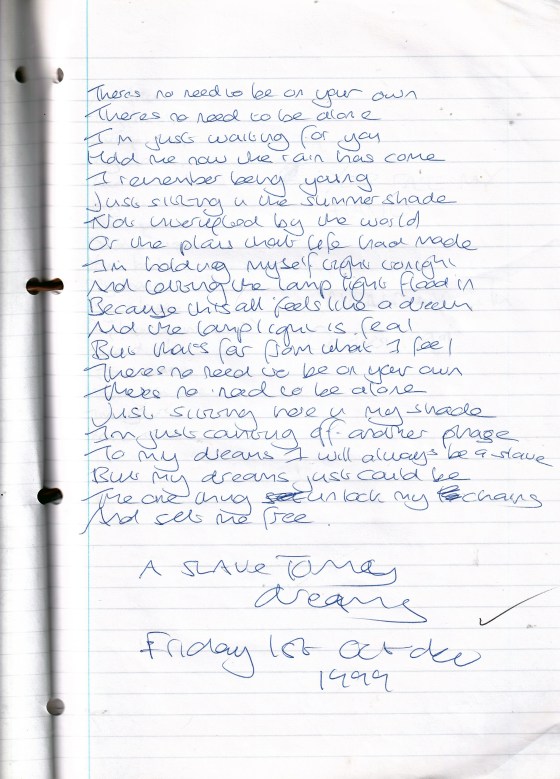 Theres no need to be on your own
Theres no need to be alone
I'm just waiting for you
Hold me now the rain has come
I remember being young
Just sitting in the summer shade
Not interupted by the world
Or the plans that life had made
I'm holding myself tight tonight
And letting the lamp light flood in
Because this all feels like a dream
And the lamplight is real
But thats far from what I feel
Theres no need to be on your own
Theres no need to be alone
Just sitting here in my shade
I'm just casting off another phase
To my dreams I will always be a slave
But my dreams just could be
The one thing unlock my chains
And sets me free
A SLAVE TO my
dreams
Friday 1st October
1999